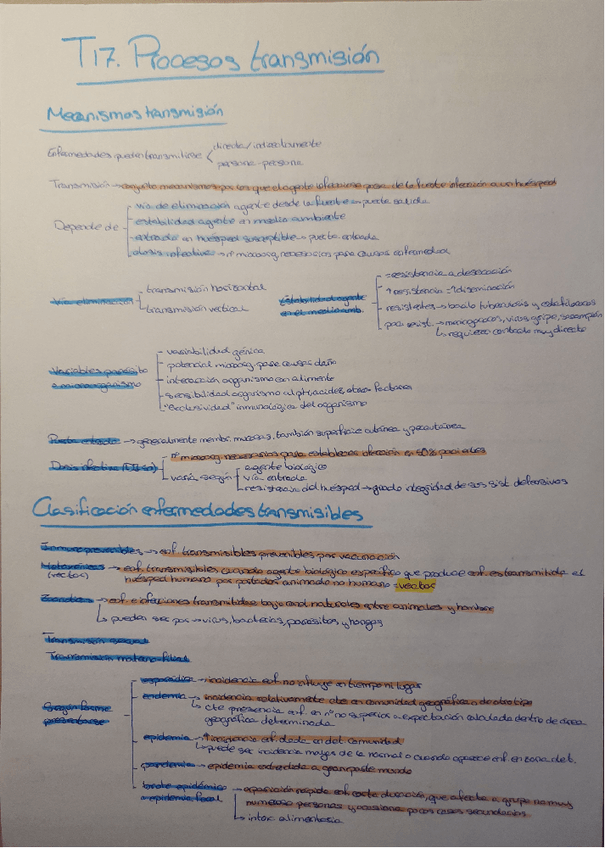 T17. Procesos transmisión
Mecanismos transmisión
Enfermedades pueden transmitirse directa/indirectamente
persona-persona
Transmisión → conjunto mecanismos por los que el agente infeccioso pasa de la fuente infección a un huésped
Depende de
vía de eliminación agente desde la fuente → puerta salida
estabilidad agente en medio ambiente
entrada en huésped susceptible → puerta entrada
dosis infectiva → nº microorg necesarios para causar enfermedad
Vía eliminación
transmisión horizontal
transmisión vertical
Estabilidad agente
en el medio amb.
resistencia a desecación
↑resistencia → ↑diseminación
resistentes → bacilo tuberculosis y estafilococos
poco resist. → meningococos, virus gripe, sarampión
↳ requieren contacto muy directo
Variables
microorganismo
variabilidad génica
potencial microorg para causar daño
interacción organismo con alimento
sensibilidad organismo al pH, acidez, otros factores
inmunológica del organismo
Puerta entrada → generalmente membr. mucosas, también superficie cutánea y percutánea
Dosis infectiva (DI50)
nº microorg necesarios para establecer infección en 50% pacientes
varía según
agente biológico
vía entrada
resistencia del huésped → grado integridad de sus sist. defensivos
Clasificación enfermedades transmisibles
Inmunoprevenibles → enf. transmisibles prevenibles por vacunación
Metaxénicas → enf. transmisibles cuando agente biológico específico que produce enf. es transmitido al
(vector) huésped humano por portador animado no humano = vector
Zoonosis → enf. e infecciones transmitidas bajo cond. naturales entre animales y hombre
↳ pueden ser por → virus, bacterias, parásitos y hongos
Transmisión sexual
Transmisión materno-filial
Según forma
presentarse
esporádica → incidencia enf. no influye en tiempo ni lugar
endemia → incidencia relativamente cte en comunidad geográfica o de otro tipo
↳ cte presencia enf. en nº no superior a expectación calculada dentro de área
geográfica determinada
epidemia → ↑frecuencia enf. dada en det. comunidad
↳ puede ser incidencia mayor de la normal o cuando aparece enf. en zona det.
pandemia → epidemia extendida a gran parte mundo
brote epidémico → aparición rápida enf. corta duración, que afecta a grupo no muy
o epidemia focal numeroso personas y ocasiona pocos casos secundarios
↳ intox. alimentaria